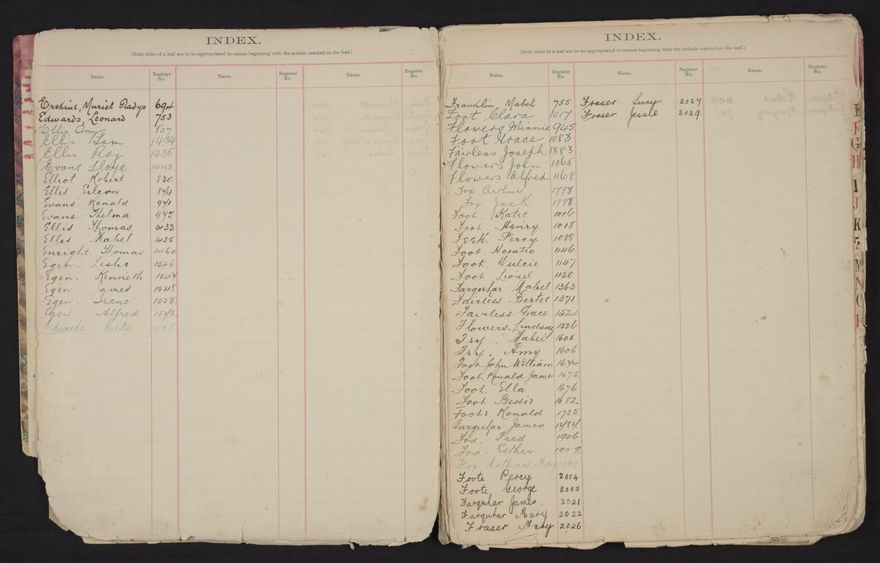 INDEX.
(Both sides of a leaf are to be appropriated to names beginning with the initials marked on the leaf.)
Name. Register No. Name. Register No. Name. Register No.
Erskine, Muriel Gladys 694
Edwards, Leonard 753
Ellis Amy 837
Ellis Sam 1434
Ellis Roy 1435
Evans Lloyd
Elliot Robert 830
Ellis Eileen 844
Evans Ronald 941
Evans Thelma 1175
Ellis Thomas 1433
Ellis Mabel 1435
Enright Thomas 1460
Egen. Leslie 1546
Egen. Kenneth 1547
Egen James 1548
Egen. Irene 1555
Egen. Alfred 1572
Edwards
INDEX.
(Both sides of a leaf are to be appropriated to names beginning with the initials marked on the leaf.)
Name. Register No. Name. Register No. Name. Register No.
Franklin, Mabel 755 Fraser Lucy 2027
Foot Clara 1017 Fraser Jessie 2029
Flowers Minnie 945
Foot Grace 1083
Fairless Joseph 1383
Flowers John 1065
Flowers Alfred 1168
Fox Arthur 1798
Fox Jack 1798
Foot Katie 1016
Foot Henry 1018
Feek Percy 1088
Foot Horatio 1146
Foot Dulcie 1147
Foot Lionel 1150
Farquhar Mabel 1363
Fairless Bertie 1371
Fairless Grace 1524
Flowers, Lindsay 1526
Fry. Mabel 1605
Fry. Amy 1606
Foot John William 1640
Foot, Ronald James 1675
Foot, Ella 1676
Foot Bessie 1682
Foots Ronald 1725
Farquhar James
Fox. Fred 1906
Fox Esther 1907
Fox Catherine May
Foote Percy 2004
Foote George 2005
Farquhar James. 2021
Farquhar Mary 2022
Fraser Mary 2026
E
F
G
H
I
J
K
M
N
O